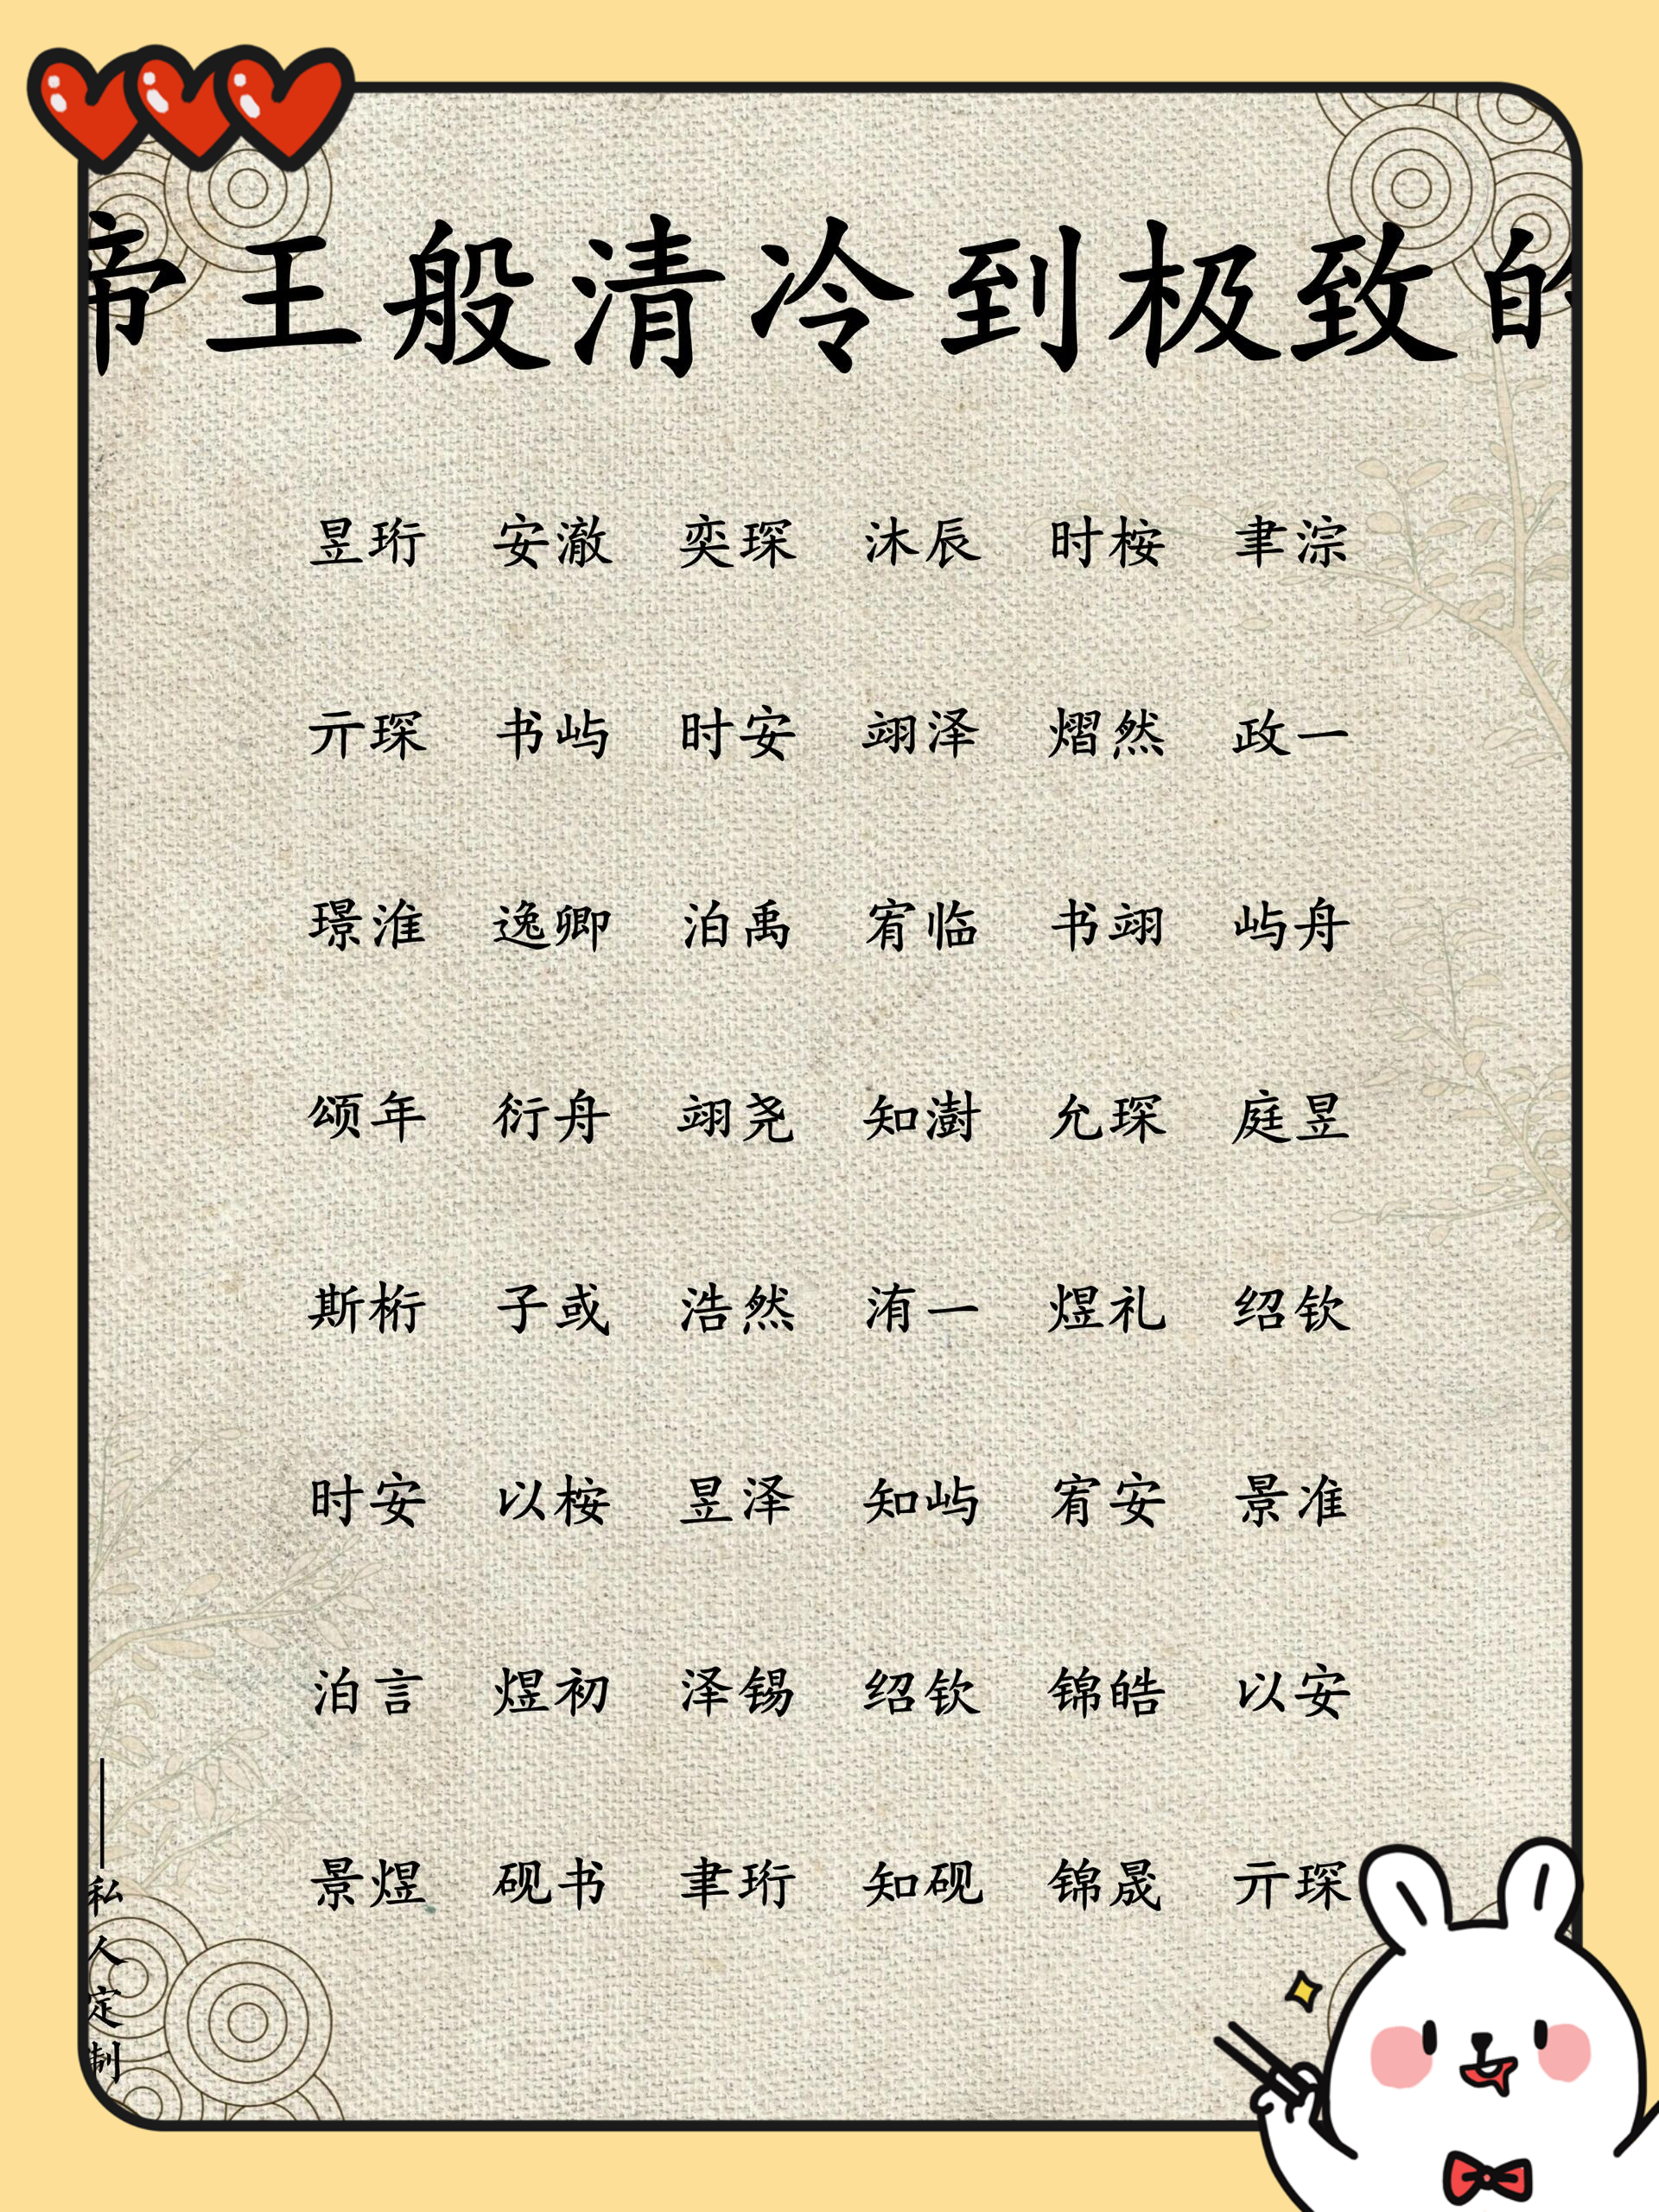 帝王般清冷到极致的
昱珩 安澈 奕琛 沐辰 时桉 聿淙
亓琛 书屿 时安 翊泽 熠然 政一
璟淮 逸卿 泊禹 宥临 书翊 屿舟
颂年 衍舟 翊尧 知澍 允琛 庭昱
斯桁 子或 浩然 洧一 煜礼 绍钦
时安 以桉 昱泽 知屿 宥安 景准
泊言 煜初 泽锡 绍钦 锦皓 以安
景煜 砚书 聿珩 知砚 锦晟 亓琛
——私人定制